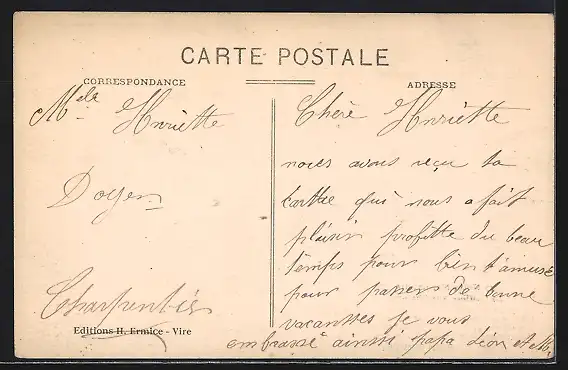 CARTE POSTALE
CORRESPONDANCE
ADRESSE
Melle Henriette
Doyen
Charpentier
Editions H. Ermice - Vire
Chere Henriette
nous avons reçu ta
cartte qui nous a fait
plaisir profitte du beau
temps pour bien t'amuse
pour passer de bonne
vacanttes je vous
embrasse ainssi papa Léon et M.